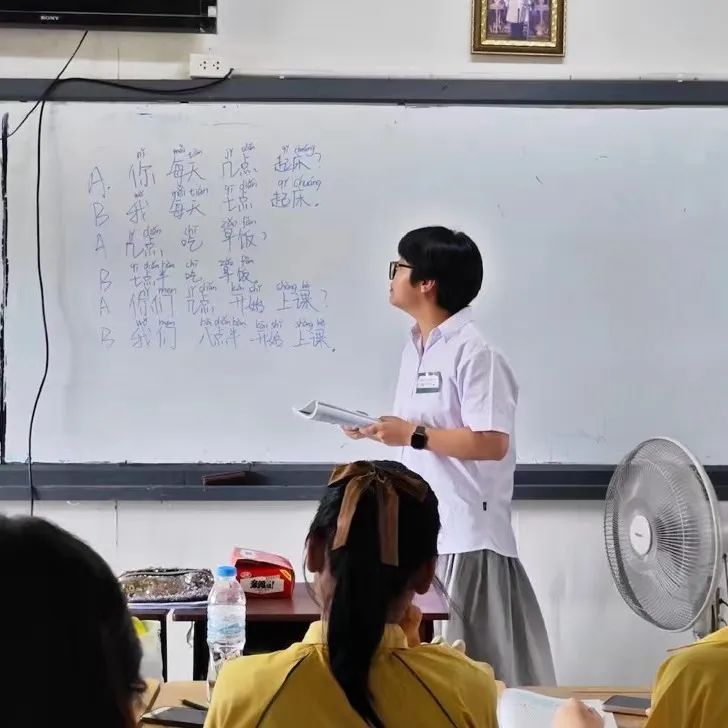 SONY
nǐ měi tiān jǐ diǎn qǐ chuáng
A. 你 每天 几点 起床?
wǒ měi tiān qī diǎn qǐ chuáng
B 我 每天 七点 起床。
jǐ diǎn chī zǎo fàn
A 几点 吃 早饭?
qī diǎn bàn chī zǎo fàn
B 七点半 吃 早饭。
nǐ men jǐ diǎn kāi shǐ shàng kè
A 你们 几点 开始 上课?
wǒ men bā diǎn bàn kāi shǐ shàng kè
B 我们 八点半 开始 上课。